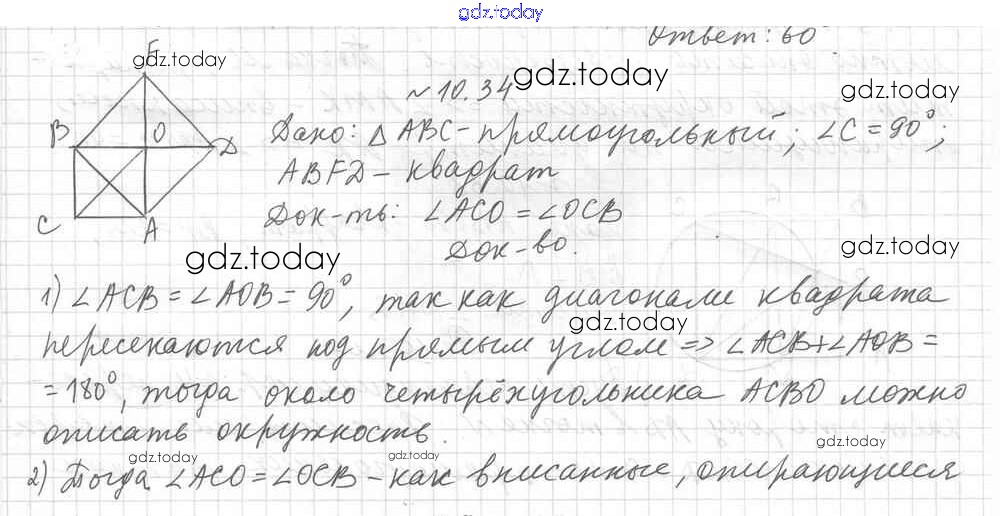 gdz.today
Ответ: 60
gdz.today
№ 10.34
gdz.today
gdz.today
F
B
O
D
C
A
Дано: △ ABC - прямоугольный; ∠C = 90°;
ABFD - квадрат
Док-ть: ∠ACO = ∠OCB
Док-во.
gdz.today
gdz.today
1) ∠ACB = ∠AOB = 90°, так как диагонали квадрата
gdz.today
пересекаются под прямым углом => ∠ACB+∠AOB =
= 180°, тогда около четырёхугольника ACBO можно
описать окружность.
gdz.today
gdz.today
gdz.today
2) Тогда ∠ACO = ∠OCB - как вписанные, опирающиеся